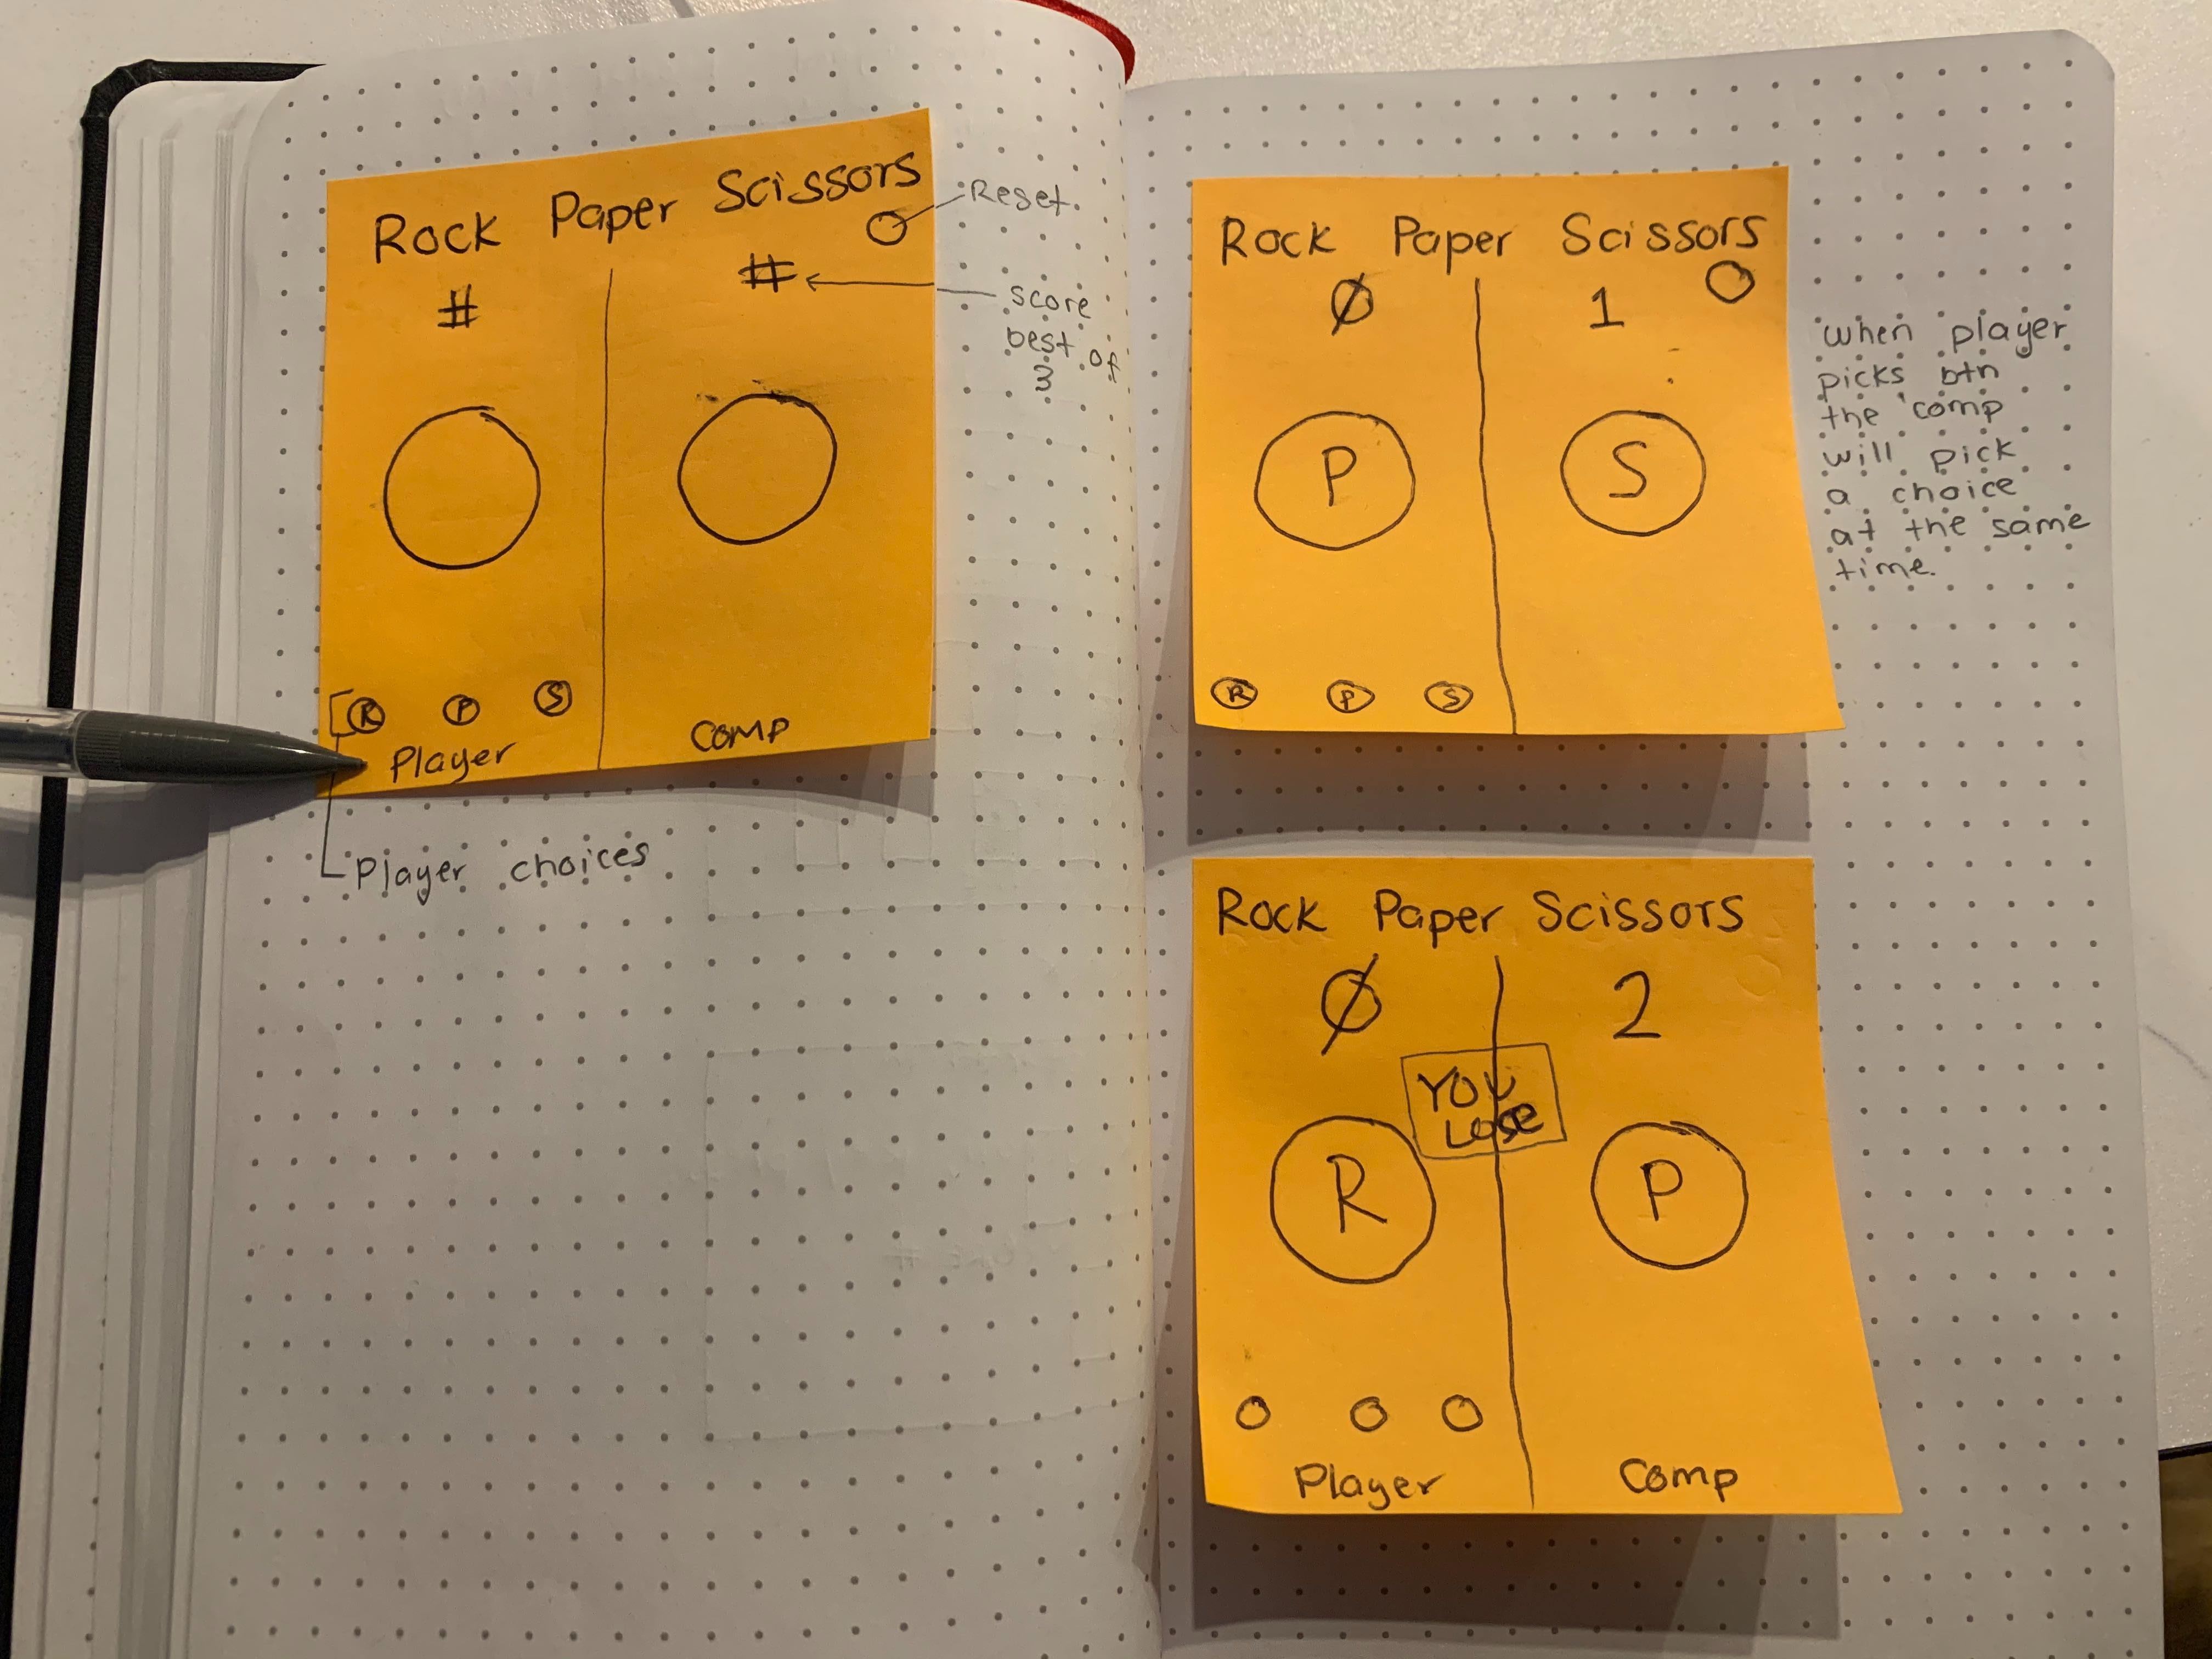 Rock Paper Scissors
Reset.
#
#
score
best of
3
R P S
Player
Comp
Player choices
Rock Paper Scissors
Ø 1
P S
R P S
when player
picks btn
the comp
will pick
a choice
at the same
time.
Rock Paper Scissors
Ø 2
YOU
Lose
R P
Player Comp